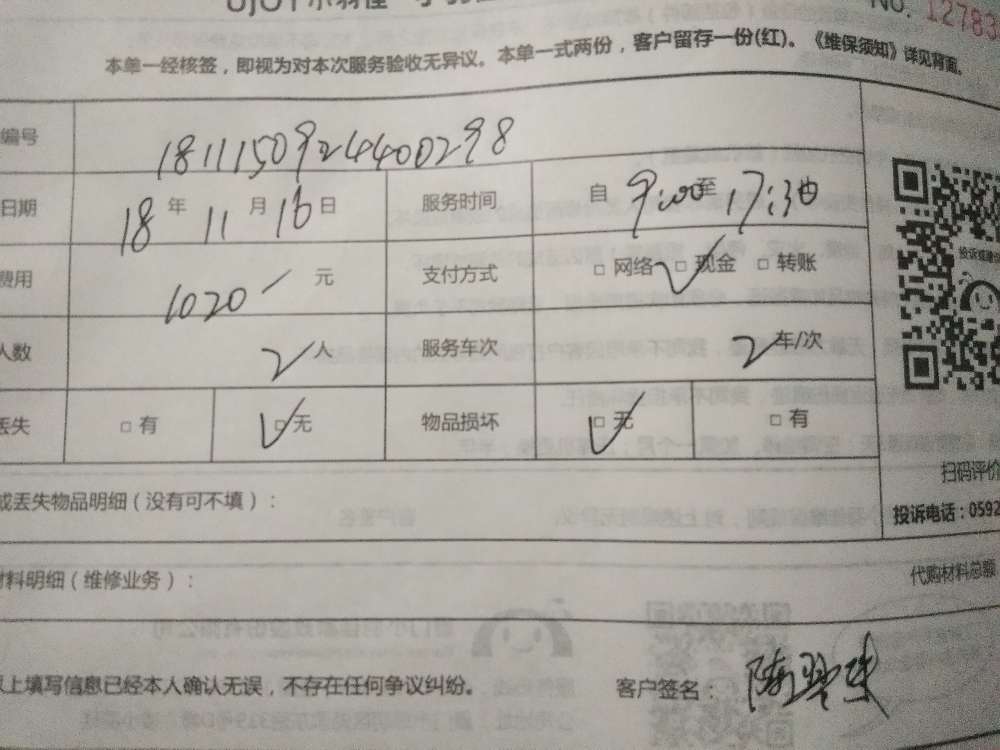 NO. 12783
本单一经核签，即视为对本次服务验收无异议。本单一式两份，客户留存一份(红)。《维保须知》详见背面。
编号 1811150924400298
日期 18 年 11 月 16 日 服务时间 自 9:00 至 17:30
费用 1020 元 支付方式 □ 网络 □ 现金 □ 转账
人数 2 人 服务车次 2 车/次
丢失 □ 有 □ 无 物品损坏 □ 无 □ 有
投诉或建议
扫码评价
或丢失物品明细（没有可不填）：
投诉电话：0592
材料明细（维修业务）： 代购材料总额
以上填写信息已经本人确认无误，不存在任何争议纠纷。 客户签名：